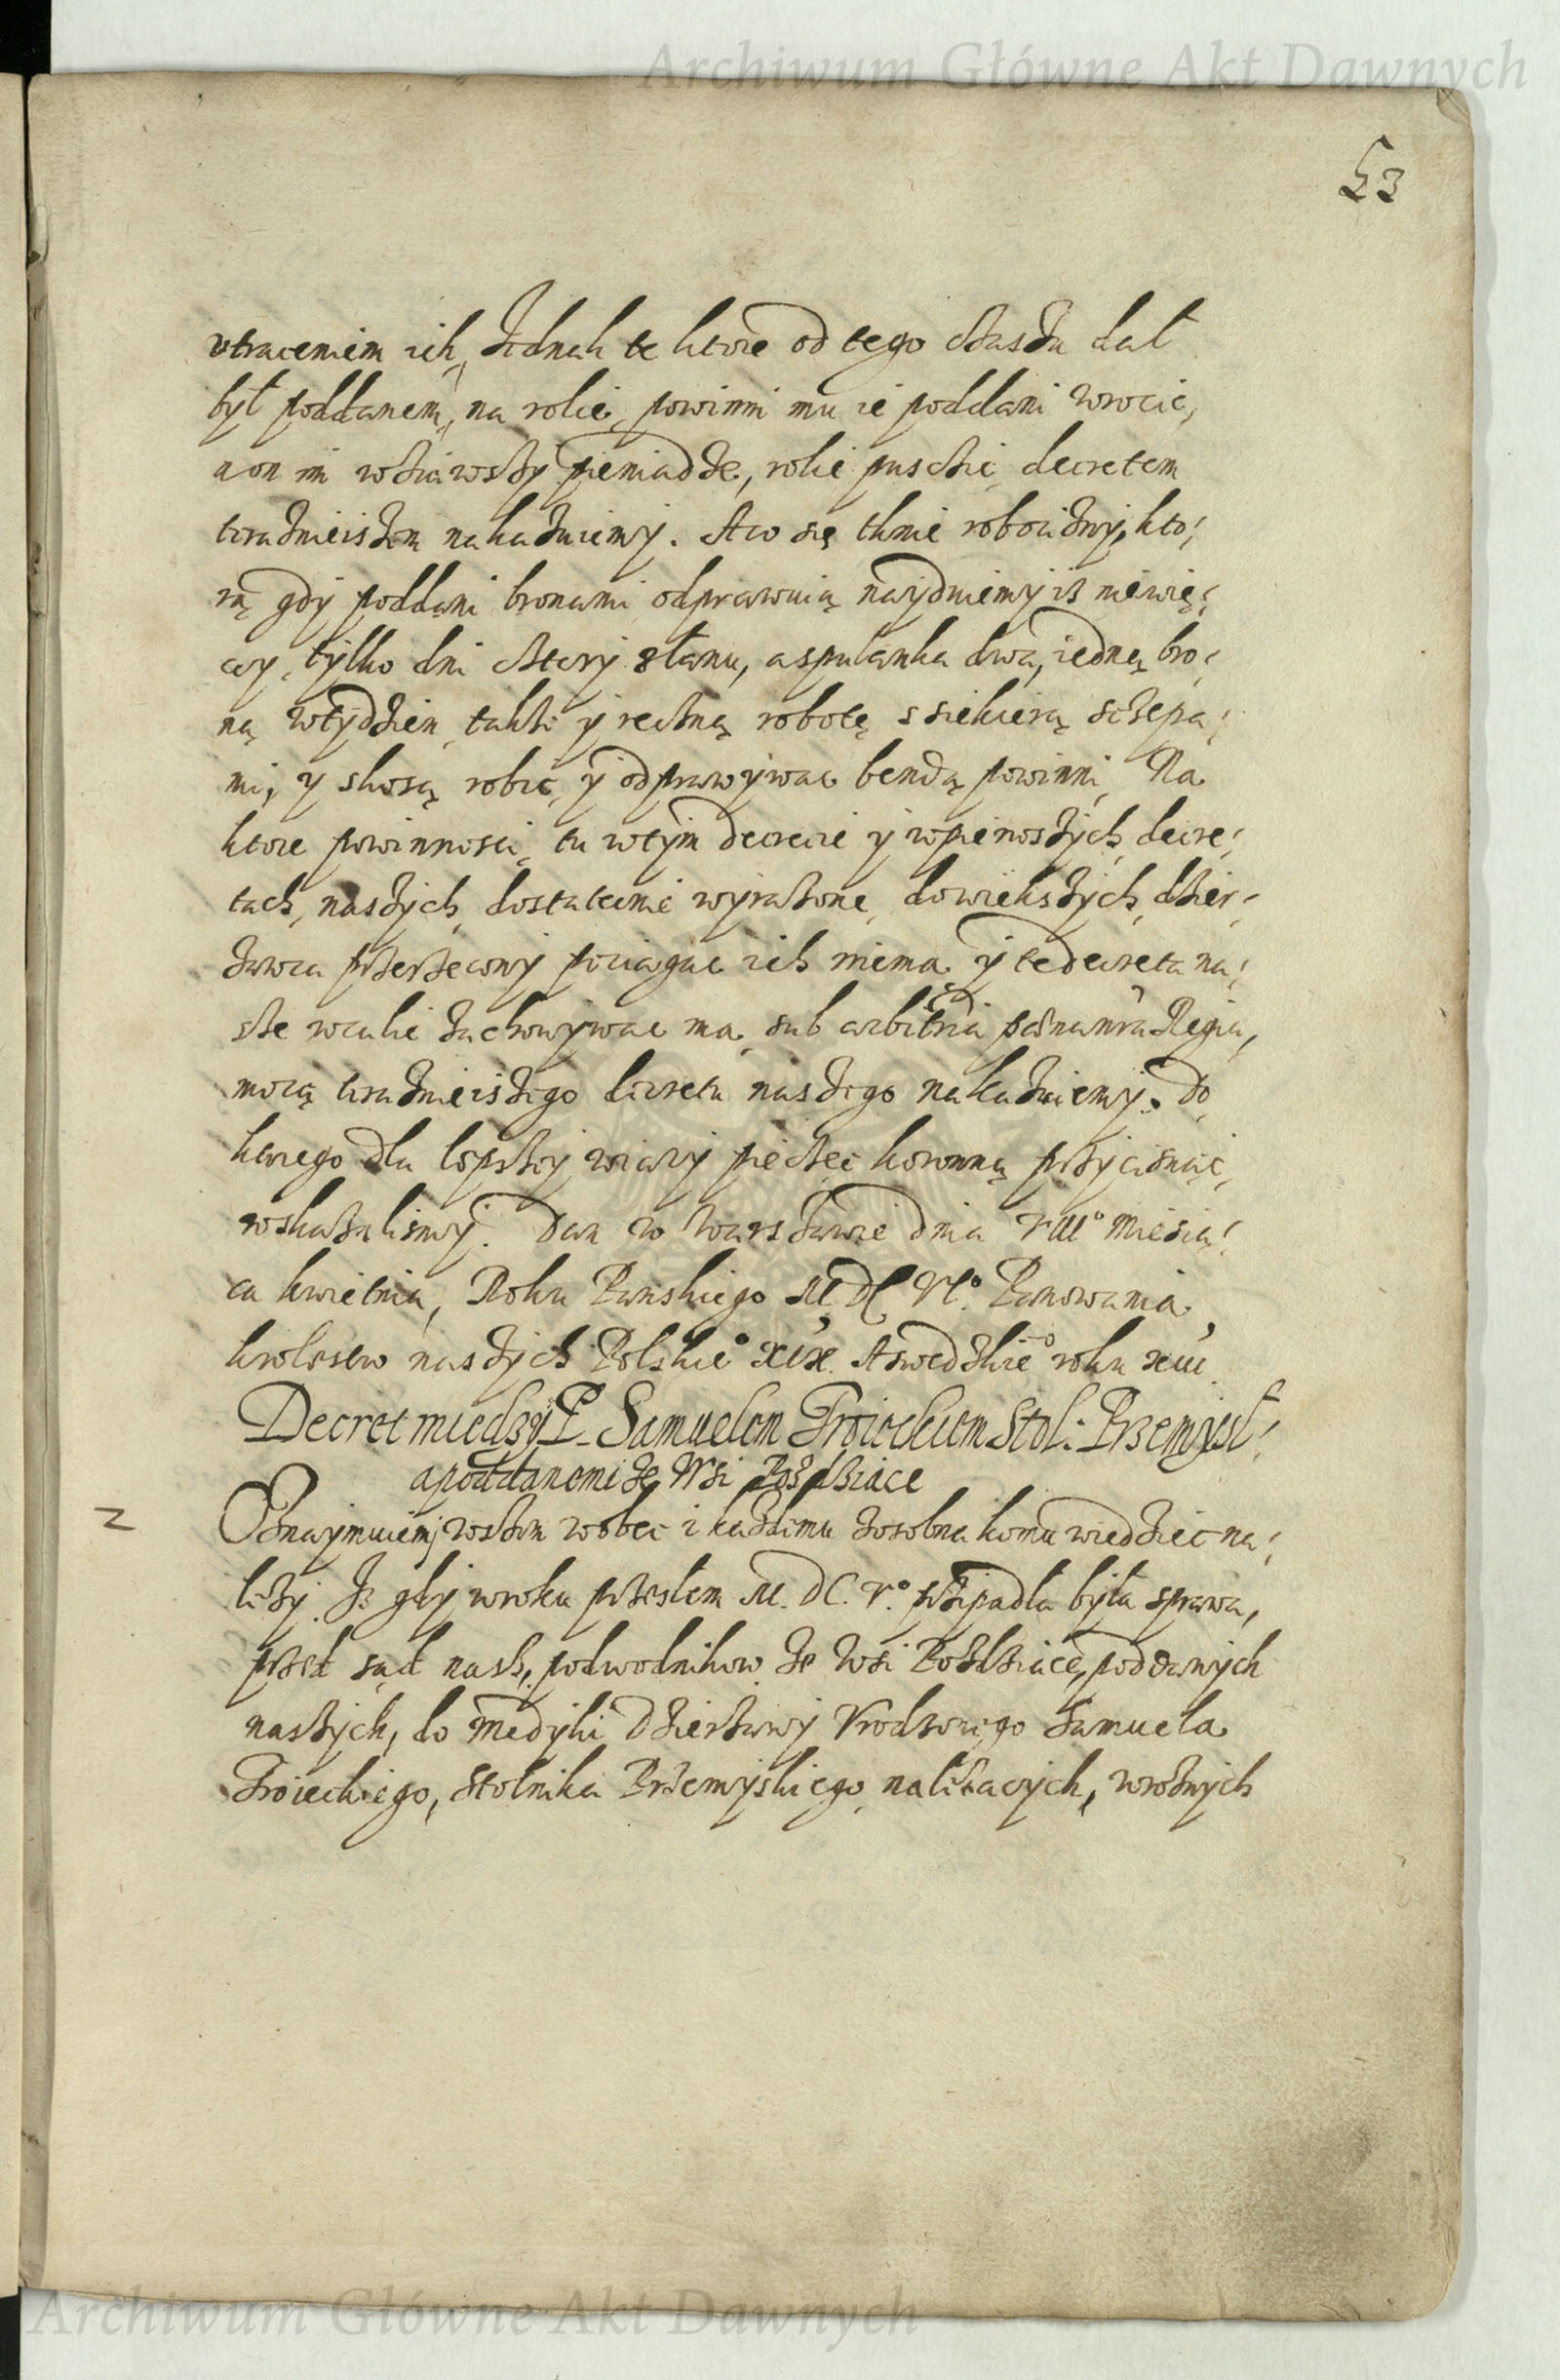 Archiwum Główne Akt Dawnych
53
utraceniem ich, Jednak te ktore od tego czasu dał
był poddanem, na rolie, powinni mu ie poddani wrocic,
a on im wziąwszy pieniądze, rolie puscic, decretem
teraznieiszem nakazuiemy. A co się tknie robocizny, kto:
rą gdy poddani bronami odprawuią naydziemy is niewię:
cy, tylko dni cztery złanu, a spułanka dwa, iedną bro:
ną wtydzien, takze y reczną robotę s siekierą scepa:
mi, y skosą robic, y odprawywac bendą powinni, Na
ktore powinnosci, tu wtym decrecie y wpierwszych decre:
tach, naszych, dostatecznie wyrazone, do wiekszych, dzier:
zawca przerzeczony pociągac ich niema, y te decreta na:
sze wcale zachowywac ma, sub arbitria paena nra Regia,
mocą teraznieiszego decretu naszego nakazuiemy. Do
kturego dla lepszey wiary pieczęc koronną przycisnąc,
wskazalismy. Dan w Warszawie dnia VIII° miesią:
ca kwietnia, Roku Panskiego M. DC. VI°. Panowania,
krolestw naszych Polskie° XIX. A swedzkie° roku XIII.
Decret miedzy P. Samuelem Troieckiem Stol: Przemysl:
a poddanemi ze Wsi Pozdziace
2
Oznaymuiemy wszem wobec i kazdemu zosobna komu wiedziec na:
lezy. Iz gdy wroku przeszłem M. DC. V°. przypadła była sprawa,
przed sąd nasz, podwodnikow ze Wsi Pozdziace, poddanych
naszych, do Medyki dzierzawy Vrodzonego Samuela
Troieckiego, Stolnika Przemyskiego należacych, w roznych
Archiwum Główne Akt Dawnych